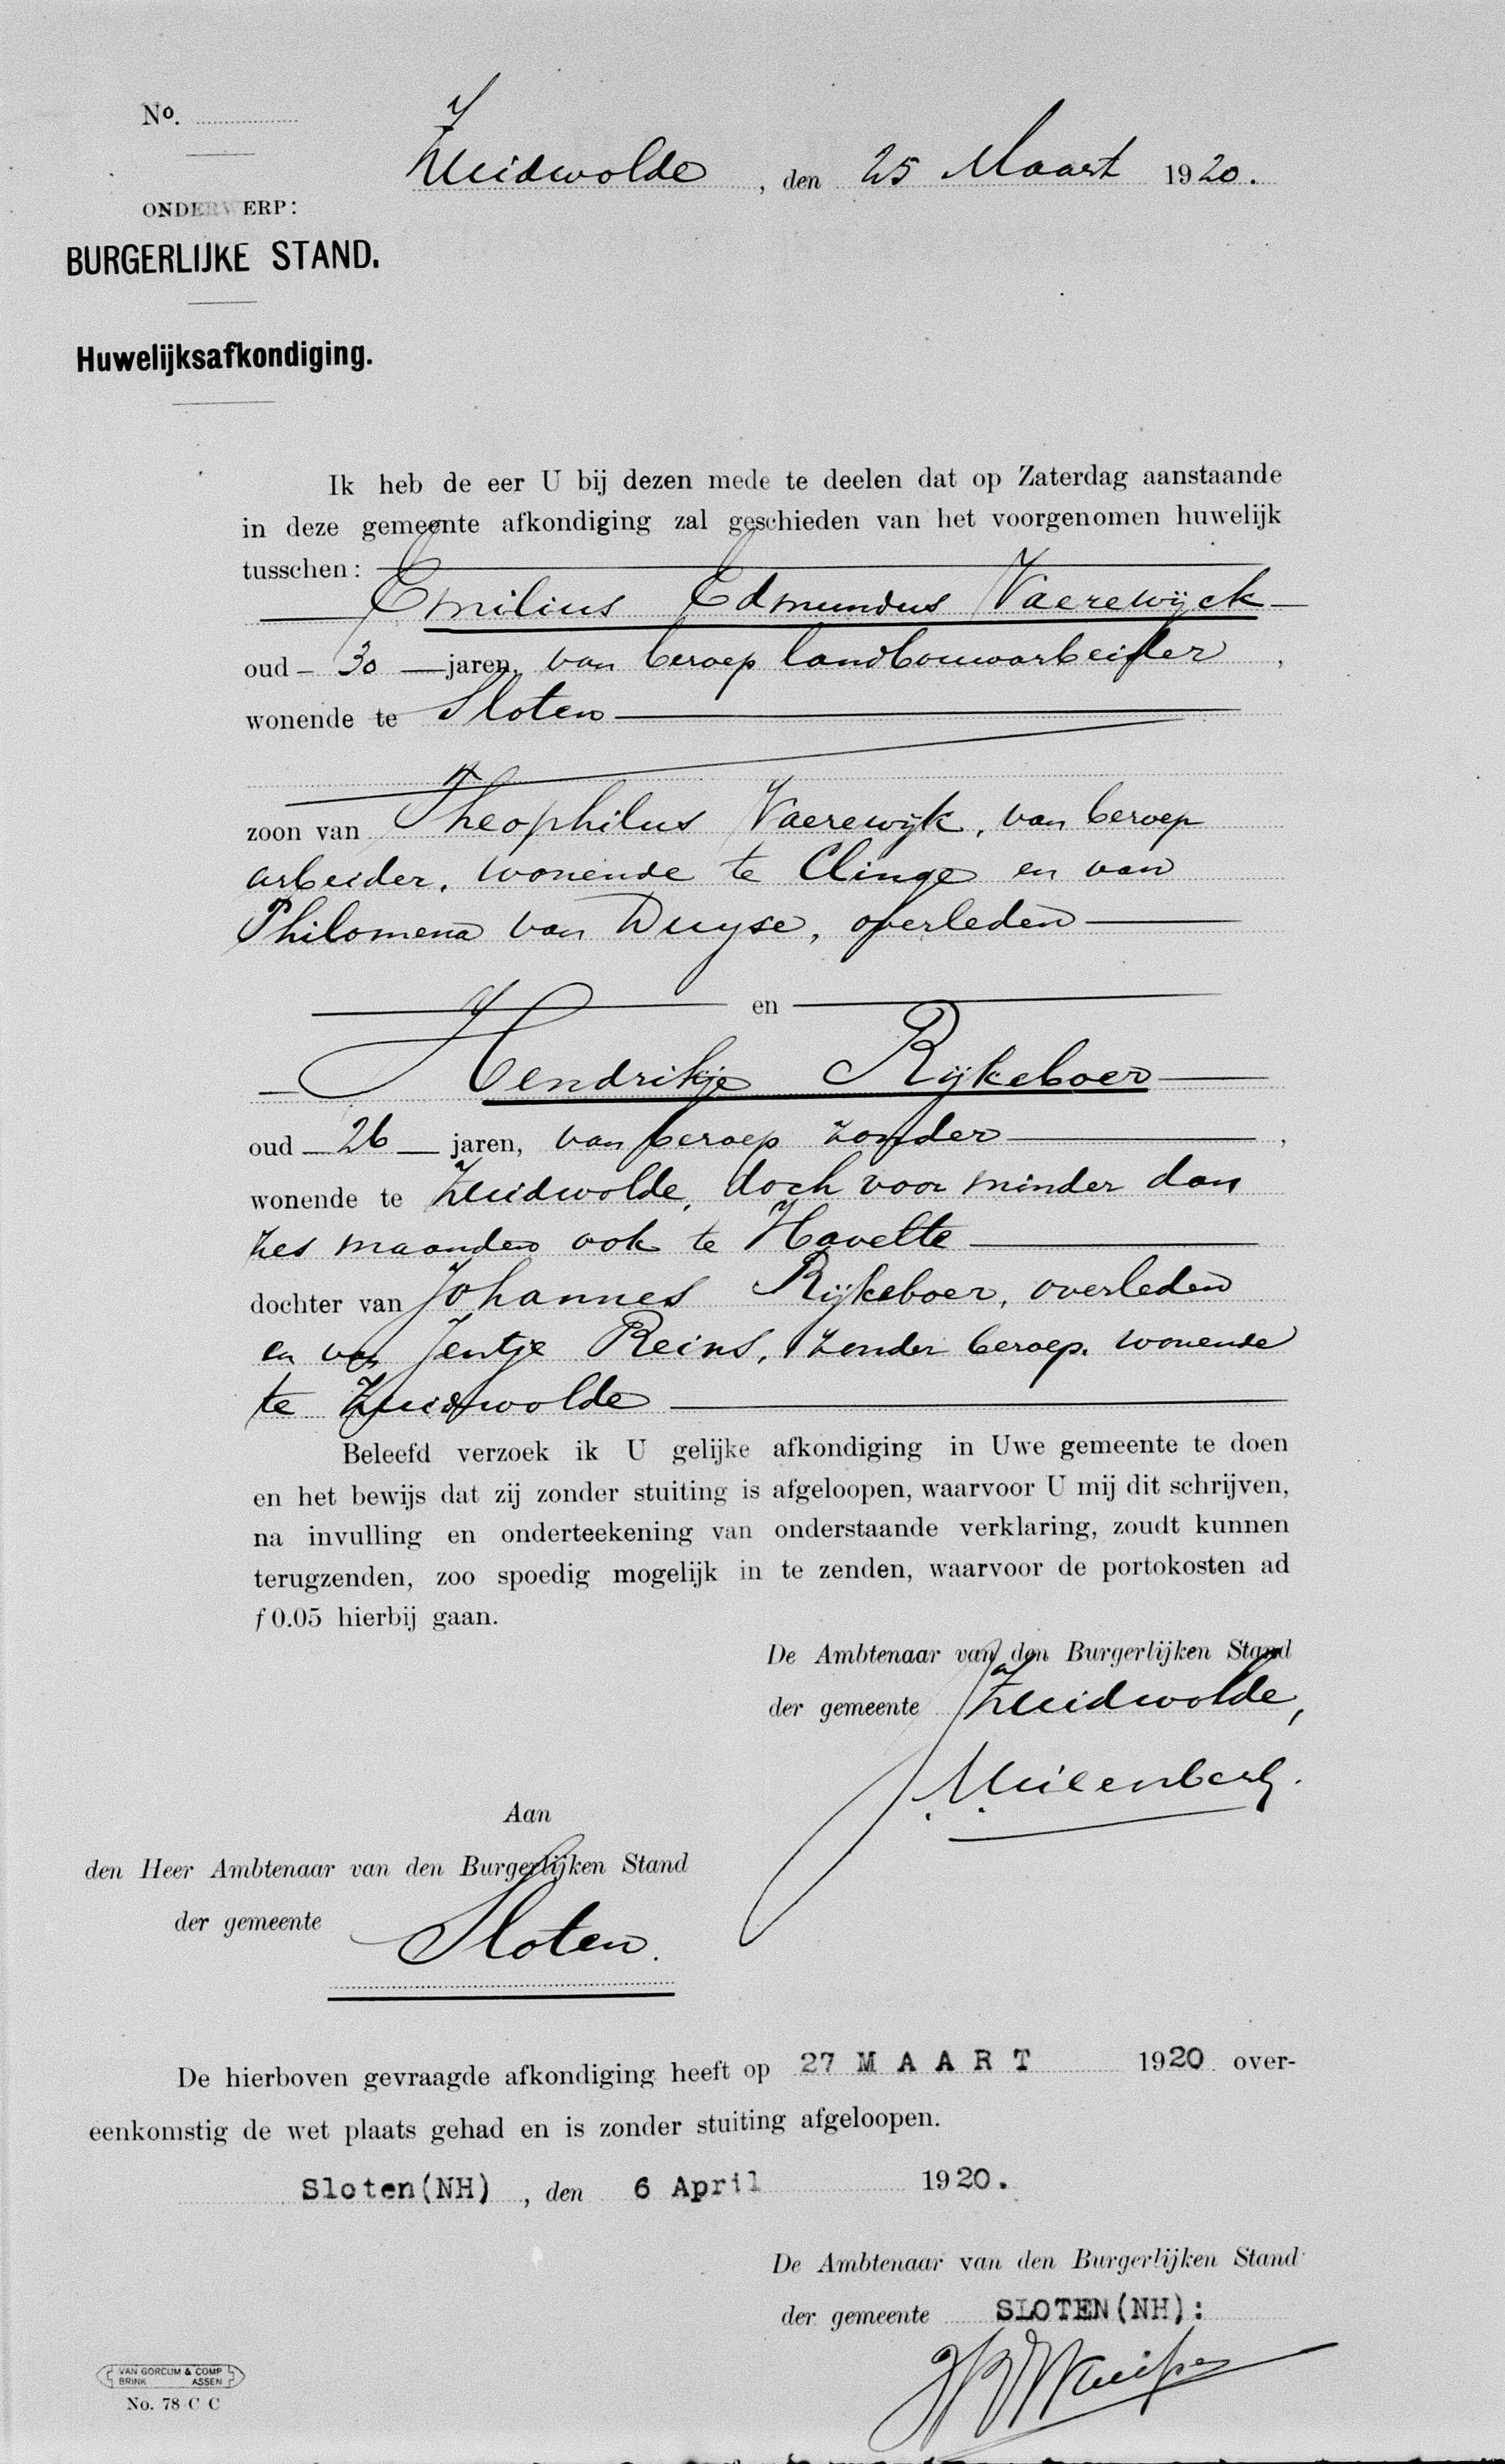 No.
Zuidwolde, den 25 Maart 1920.
ONDERWERP:
BURGERLIJKE STAND.
Huwelijksafkondiging.
Ik heb de eer U bij dezen mede te deelen dat op Zaterdag aanstaande
in deze gemeente afkondiging zal geschieden van het voorgenomen huwelijk
tusschen:
Emilius Edmundus Vaerewijck
oud 30 jaren, van beroep landbouwarbeider,
wonende te Sloten
zoon van Theophilus Vaerewijk, van beroep
arbeider, wonende te Clinge en van
Philomena van Duyse, overleden
en
Hendrikje Rijkeboer
oud 26 jaren, van beroep zonder,
wonende te Zuidwolde, doch voor minder dan
zes maanden ook te Havelte
dochter van Johannes Rijkeboer, overleden
en van Jentje Reins, zonder beroep, wonende
te Zuidwolde
Beleefd verzoek ik U gelijke afkondiging in Uwe gemeente te doen
en het bewijs dat zij zonder stuiting is afgeloopen, waarvoor U mij dit schrijven,
na invulling en onderteekening van onderstaande verklaring, zoudt kunnen
terugzenden, zoo spoedig mogelijk in te zenden, waarvoor de portokosten ad
f 0.05 hierbij gaan.
De Ambtenaar van den Burgerlijken Stand
der gemeente Zuidwolde,
Aan
den Heer Ambtenaar van den Burgerlijken Stand
der gemeente Sloten.
De hierboven gevraagde afkondiging heeft op 27 MAART 1920 over-
eenkomstig de wet plaats gehad en is zonder stuiting afgeloopen.
Sloten(NH), den 6 April 1920.
De Ambtenaar van den Burgerlijken Stand
der gemeente SLOTEN(NH):
VAN GORCUM & COMP
BRINK ASSEN
No. 78 C C